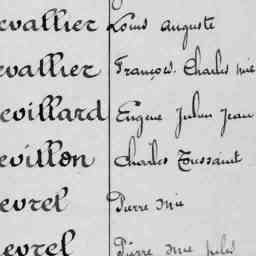 evallier Louis Auguste
evallier François Charles Mie
evillard Eugène Julien Jean
evillon Charles Toussaint
evrel Pierre Mie
evrel Pierre Mie Jules